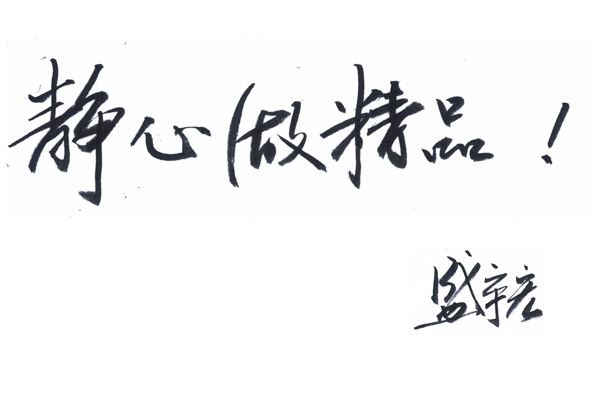 静心做精品！
盛宗